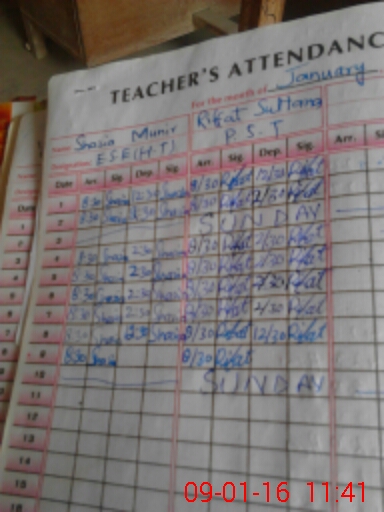 TEACHER'S ATTENDANC
For the month of January
Name Shazia Munir
Rifat Sultana
Designation E S E (H.T)
P.S.T
Date Arr. Sig. Dep. Sig. Arr. Sig. Dep. Sig. Arr. Sig.
1 8:30 Shazia 12:30 Shazia 8/30 Rifat 12/30 Rifat
2 8:30 Shazia Shazia 8/30 Rifat Rifat
3 SUNDAY
4 8:30 Shazia 2:30 Shazia 8/30 Rifat 2/30 Rifat
5 8:30 Shazia 2:30 Shazia 8/30 Rifat 2/30 Rifat
6 8:30 Shazia 2:30 Shazia 8/30 Rifat 2/30 Rifat
7 8:30 Shazia 2:30 Shazia 8/30 Rifat 2/30 Rifat
8 8:30 Shazia 12:30 Shazia 8/30 Rifat 12/30 Rifat
9 8:30 Shazia 8/30 Rifat
10 SUNDAY
11
12
13
14
15
16
09-01-16 11:41